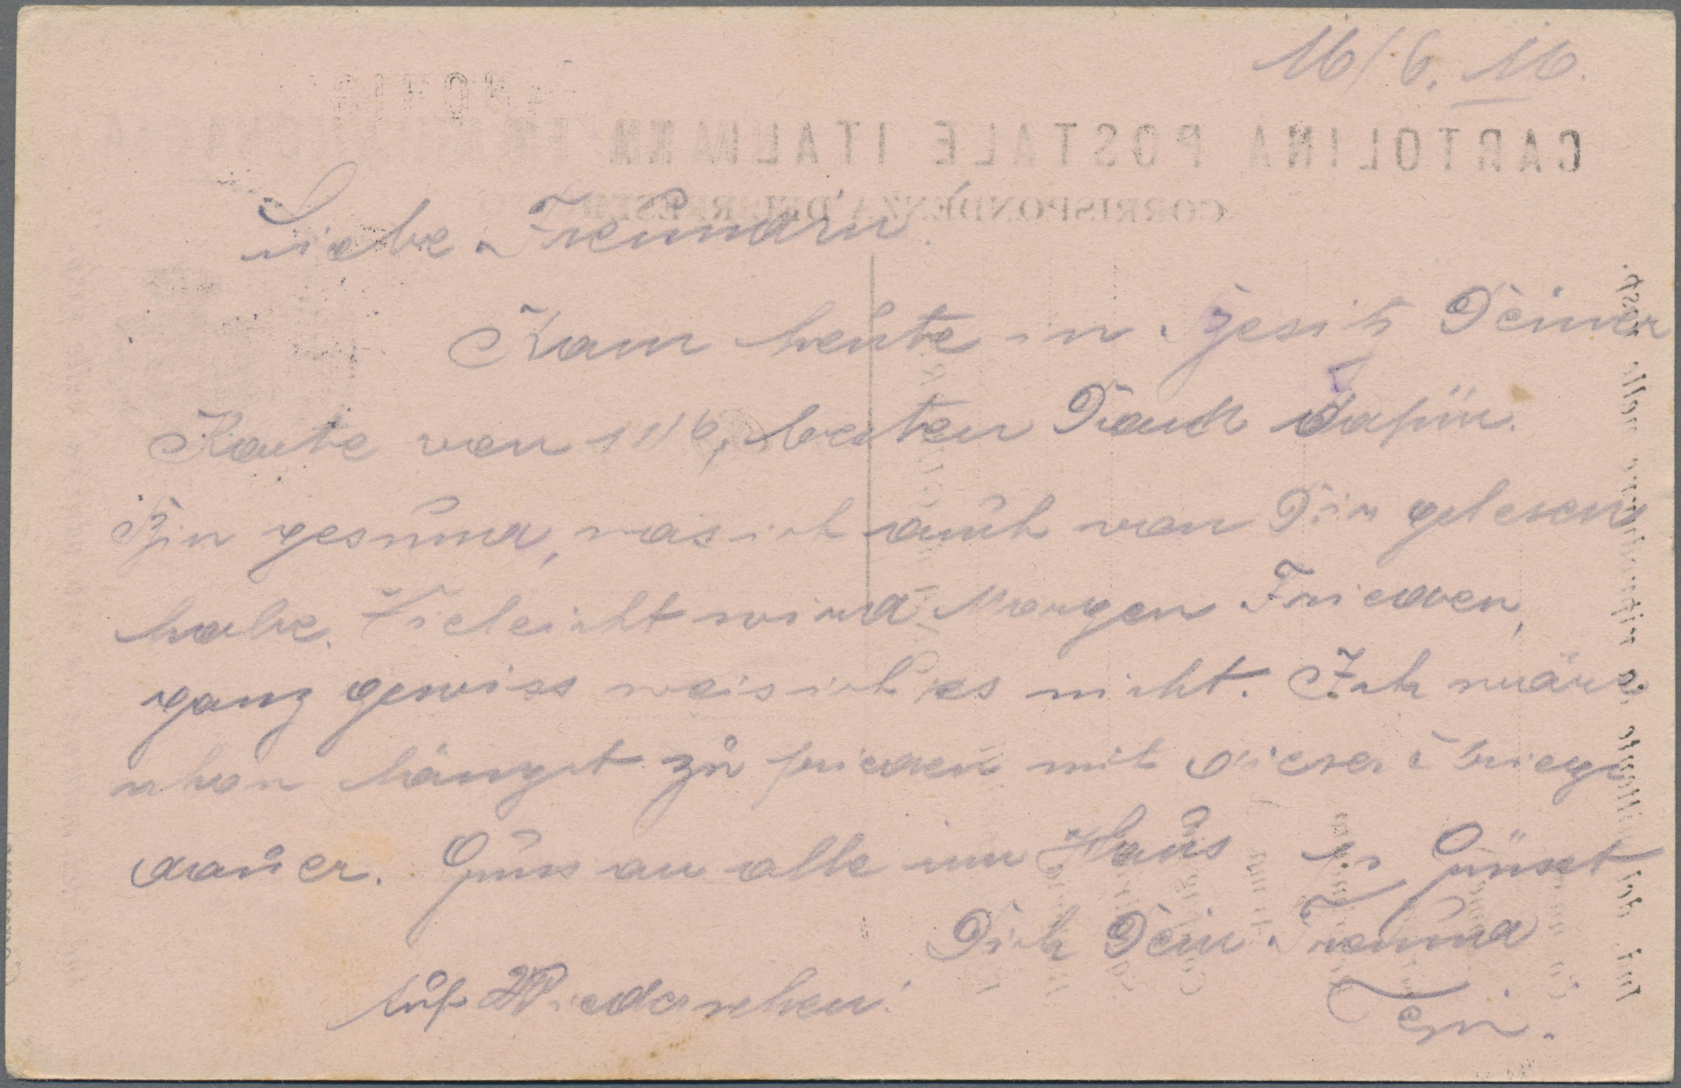 16/6. 16.
Liebe Freundin
Kam heute in Besitz Deiner
Karte von 11/6, besten Dank dafür.
Bin gesund, was ich auch von Dir gelesen
habe. Vieleicht wird Morgen Frieden,
ganz gewiss weis ich es nicht. Ich wäre
schon längst zufrieden mit dieser
dauer. Gruss an alle im Haus es Grüsst
Dich Dein Freund
Auf Wiedersehen!